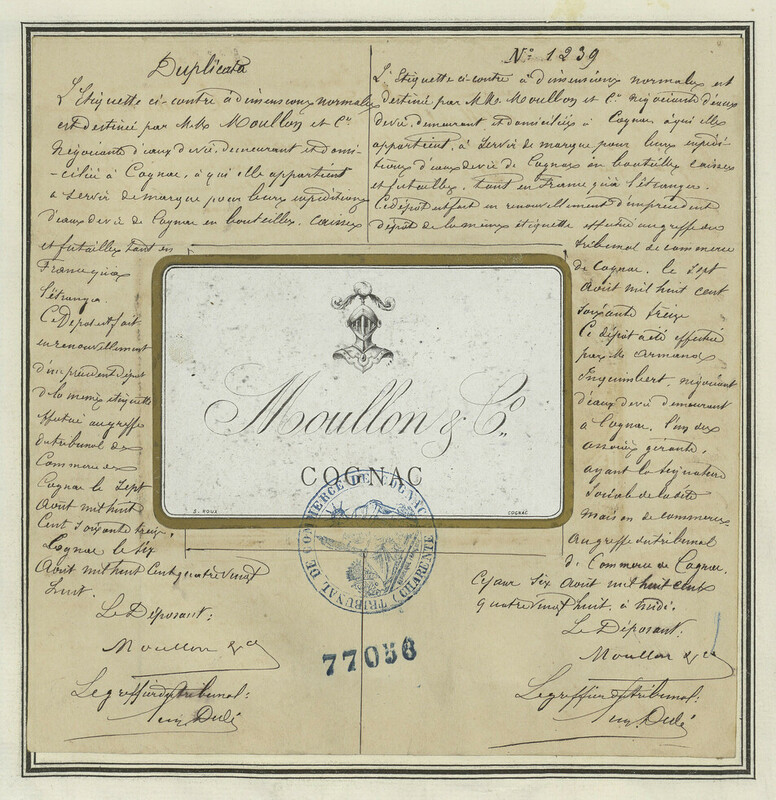 Duplicata
L'Etiquette ci-contre à dimensions normales
est destinée par M.Mrs Moullon et Cie
Négociants d'eaux de vie, demeurant et domi-
-ciliés à Cognac, à qui elle appartient
a servir de marque pour leurs expéditions
d'eaux de vie de Cognac en bouteilles, caisses
et futailles tant en
France qu'à
l'étranger
Ce Dépôt est fait
en renouvellement
d'un précédent dépôt
de la même étiquette
effectué au greffe
du tribunal de
Commerce de
Cognac le sept
Août mil huit
Cent soixante treize.
Cognac le six
Août mil huit Cent quatre vingt
huit.
Le Déposant:
Moullon & Cie
Le greffier du tribunal:
Dulé
No 1239
L'Etiquette ci-contre à dimensions normales est
destinée par M.Mrs Moullon et Cie Négociants d'eaux
de vie, demeurant et domiciliés à Cognac, à qui elle
appartient, à servir de marque pour leurs expédi-
tions d'eaux de vie de Cognac en bouteilles caisses
et futailles, tant en France qu'à l'étranger.
Ce dépôt est fait en renouvellement d'un précédent
dépôt de la même étiquette effectué au greffe du
tribunal de commerce
de Cognac, le sept
Août mil huit cent
soixante treize
Ce dépôt a été effectué
par M. Armand
Inquimbert, négociant
d'eaux de vie demeurant
à Cognac, l'un des
associés gérants,
ayant la signature
sociale de la dite
maison de commerce
Au greffe du tribunal
de Commerce de Cognac,
Ce jour six Août mil huit cent
quatre vingt huit, à midi.
Le Déposant:
Moullon & Cie
Le greffier du tribunal:
Dulé
Moullon & Co.
COGNAC
S. ROUX
COGNAC
TRIBUNAL DE COMMERCE DE COGNAC (CHARENTE)
77056